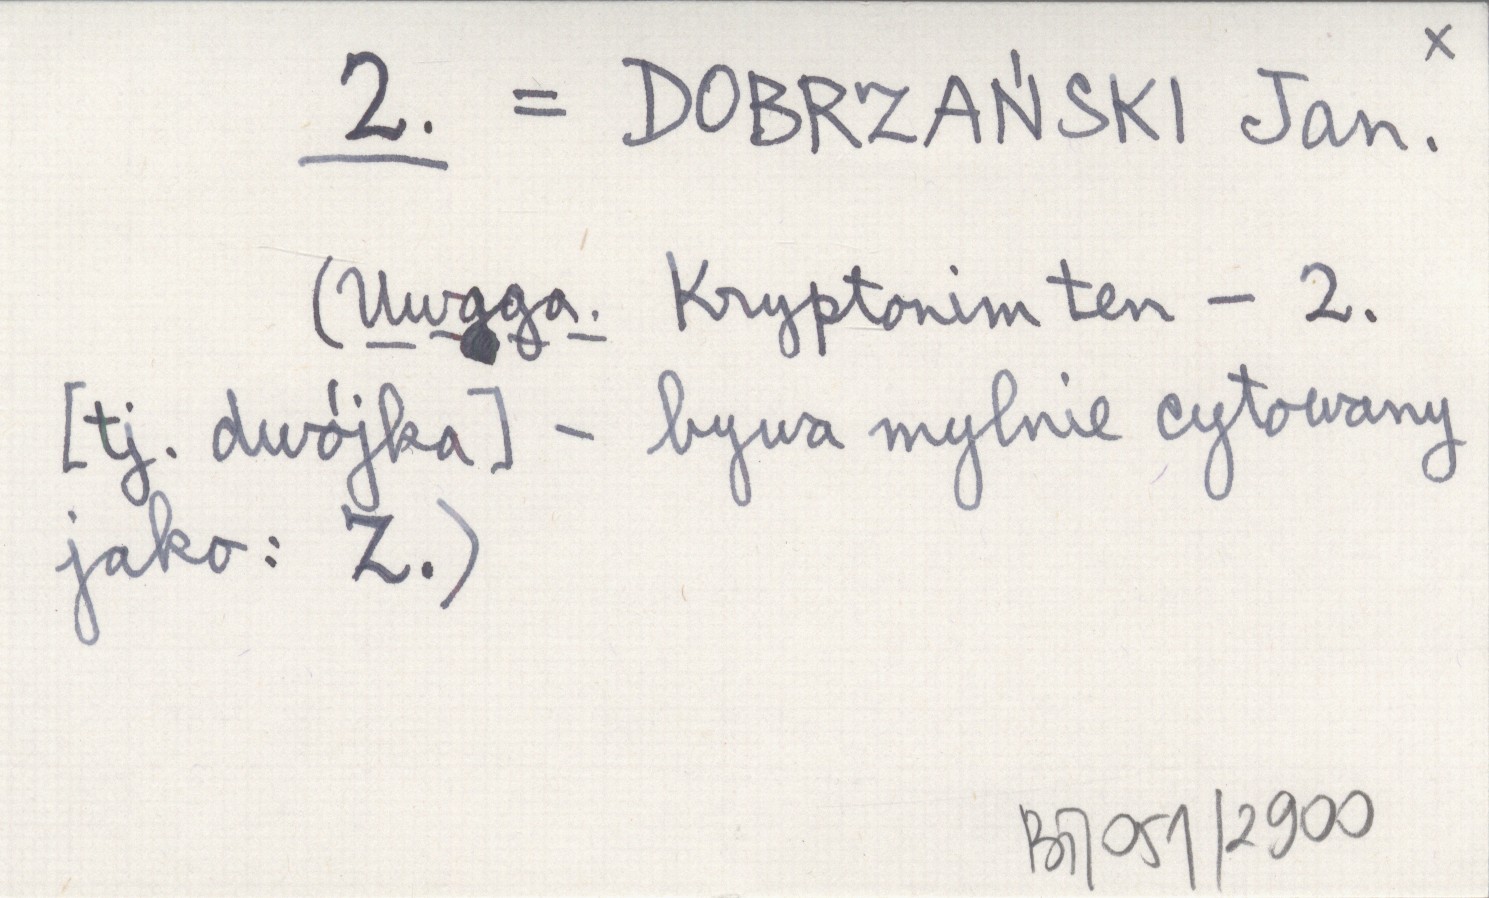 x
2. = DOBRZAŃSKI Jan.
(Uwaga. Kryptonim ten – 2.
[tj. dwójka] – bywa mylnie cytowany
jako: Z.)
051/2900